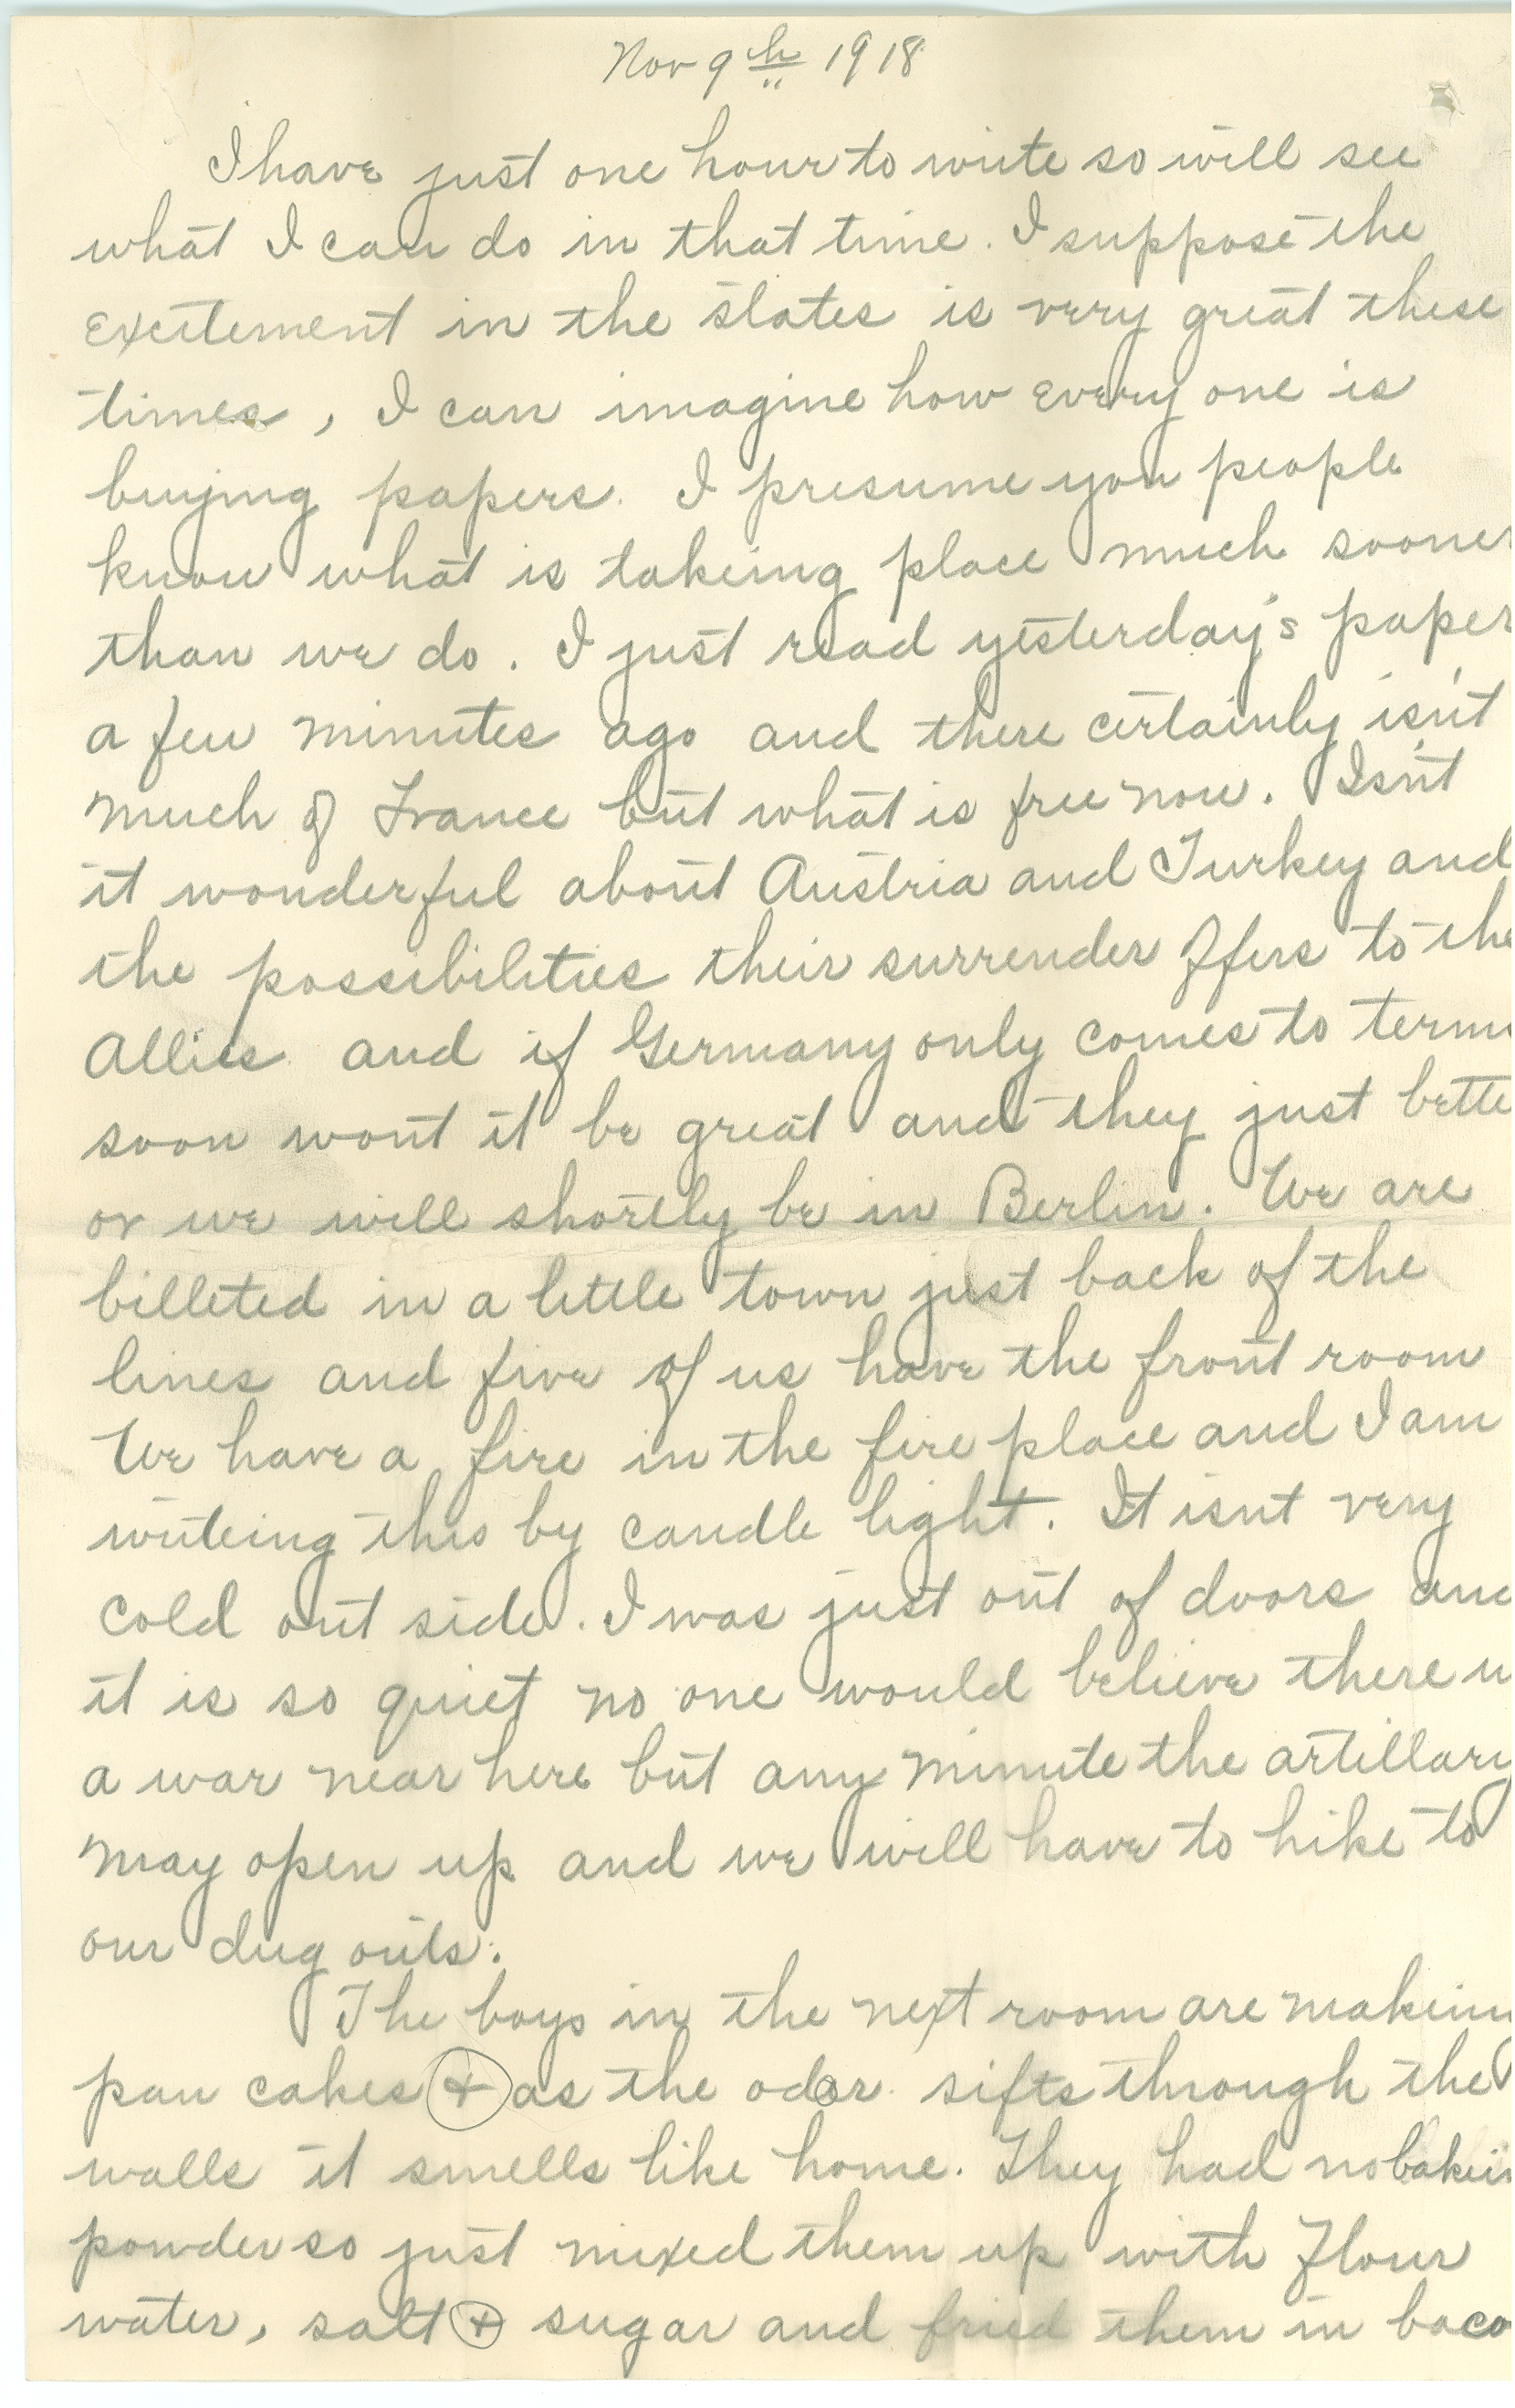 Nov 9th 1918
I have just one hour to write so will see
what I can do in that time. I suppose the
excitement in the states is very great these
times, I can imagine how every one is
buying papers. I presume you people
know what is takeing place much sooner
than we do. I just read yesterday's paper
a few minutes ago and there certainly isn't
much of France but what is free now. Isn't
it wonderful about Austria and Turkey and
the possibilities their surrender offers to the
Allies and if Germany only comes to terms
soon wont it be great and they just bette
or we will shortly be in Berlin. We are
billeted in a little town just back of the
lines and five of us have the front room
We have a fire in the fire place and I am
writeing this by candle light. It isnt very
cold out side. I was just out of doors and
it is so quiet no one would believe there
a war near here but any minute the artillary
may open up and we will have to hike to
our dug outs.
The boys in the next room are makein
pan cakes & as the odor sifts through the
walls it smells like home. They had no bakein
powder so just mixed them up with flour
water, salt & sugar and fried them in baco